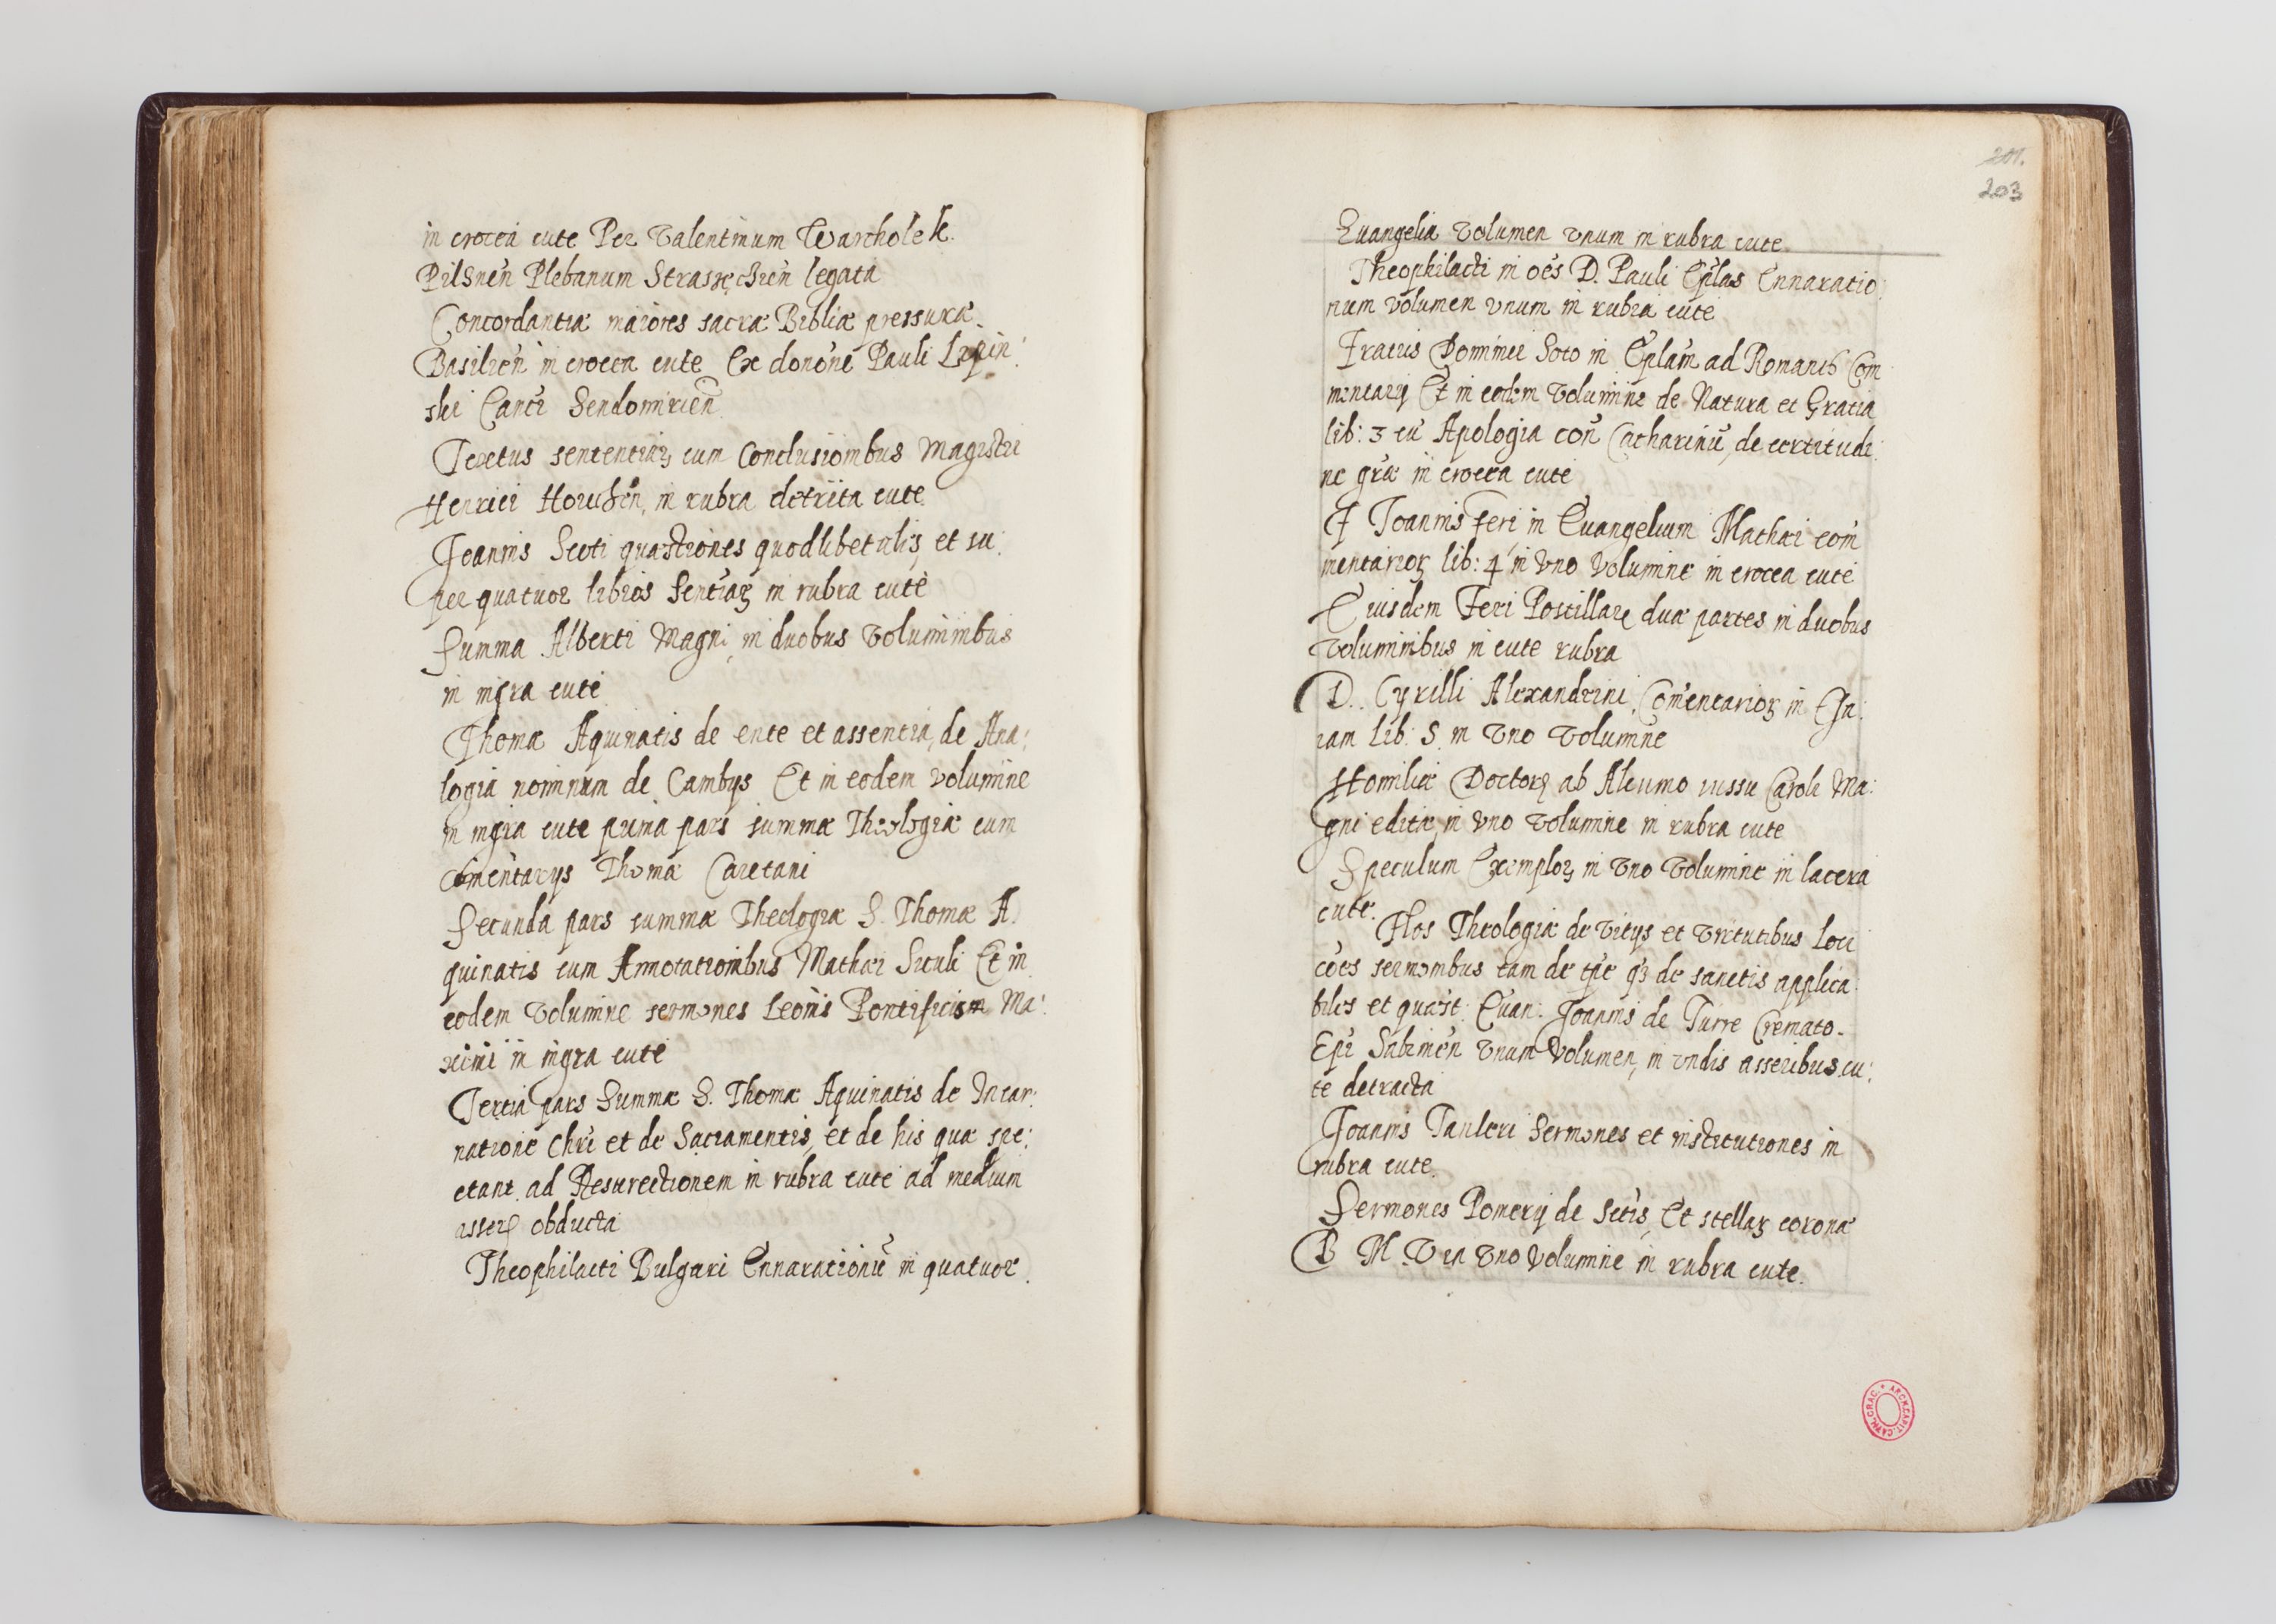 in crocea cute Per Valentinum Warcholek
Pilsnen̄ Plebanum Straszęcien̄ legata
Concordantiæ maiores sacræ Bibliæ pressura
Basilien̄ in crocea cute Ex donōne Pauli Lipin:
ski Canci Sendomirien̄
Textus sententiaꝝ cum Conclusionibus Magistri
Henrici in rubra detrita cute
Joannis Scoti quæstiones quodlibetalis, et su:
per quatuor libros Sentiaꝝ in rubra cute
Summa Alberti Magni in duobus Voluminibus
in nigra cute
Thomæ Aquinatis de ente et assentia, de Ana:
logia nominum de Cambys Et in eodem volumine
in nigra cute prima pars summæ Theologiæ cum
Comentarys Thomæ Caietani
Secunda pars summæ Theologiæ S. Thomæ A.
quinatis cum Annotationibus Mathæi Siculi Et in
eodem Volumine sermones Leonis Pontificis Ma:
ximi in nigra cute
Tertia pars Summæ S. Thomæ Aquinatis de Incar:
natione Chri et de Sacramentis, et de his quæ spe:
ctant ad Resurectionem in rubra cute ad medium
asseꝝ obducta
Theophilacti Bulgari Ennarationū in quatuor
201.
203
Euangelia Volumen vnum in rubra cute
Theophilacti in oēs D. Pauli Eplas Ennaratio:
num volumen vnum in rubra cute
Fratris Dominici Soto in Eplam ad Romanos Com
mentarÿ Et in eodem Volumine de Natura et Gratia
lib: 3 cū Apologia con̄ Catharinū, de certitudi:
ne gr̄æ in crocea cute
F Joannis Feri in Euangelium Mathæi com̄
mentarioꝝ lib: 4 in Vno Volumine in crocea cute
Eiusdem Feri Postillaꝝ duæ partes in duobus
Voluminibus in cute rubra
D. Cyrilli Alexandrini Com̄entarioꝝ in Esa:
iam Lib: 5 in Vno Volumine
Homiliæ Doctoꝝ ab Alcuino iussu Caroli Ma:
gni editæ in vno volumine in rubra cute
Speculum Exemploꝝ in Vno Volumine in lacera
cute.
Flos Theologiæ de Vitys et Virtutibus Loci
cōes sermonibus tam de tp̄e qꝫ de sanctis applica:
biles et quæst: Euan: Joannis de Turre Cremato.
Ep̄i Sabinen̄ Vnum Volumen, in vndis asseribus cu:
te detracta
Joannis Tauleri Sermones et institutiones in
rubra cute
Sermones Pomerÿ de Sctis, Et stellaꝝ corona
B M V in Vno Volumine in rubra cute.
ARCH. CAPIT. CATH. CRAC.